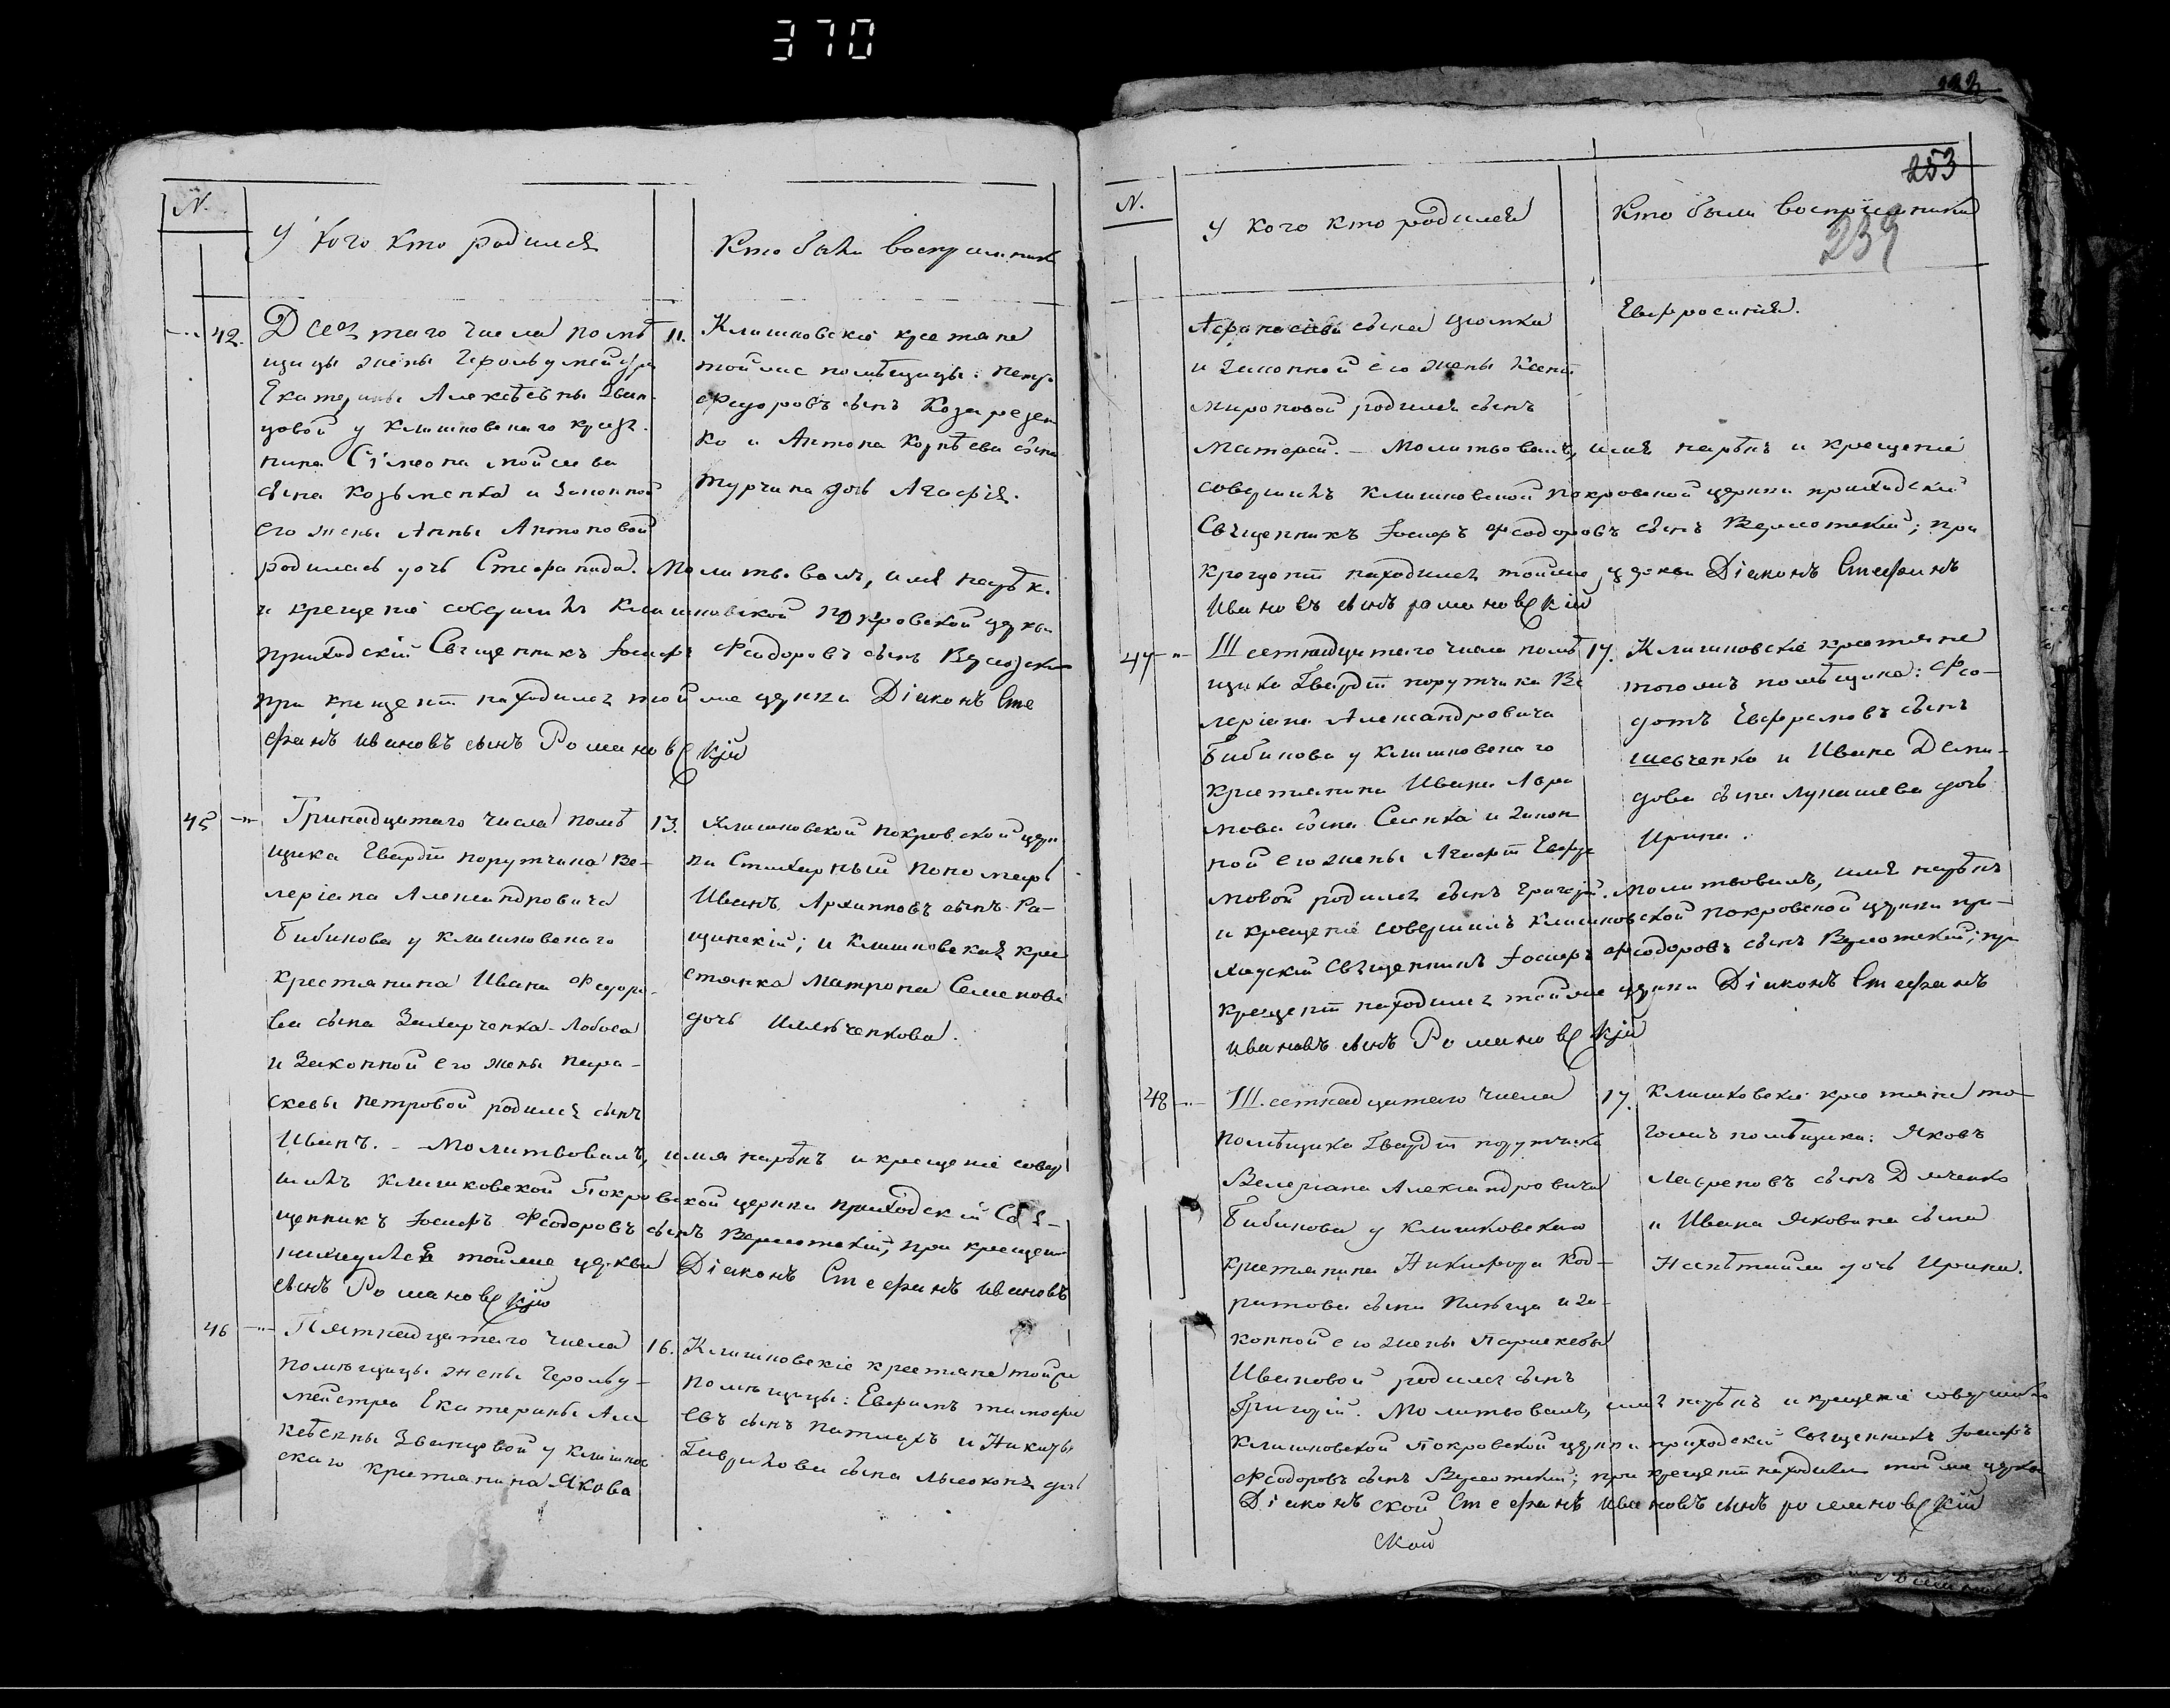 370
N.
У кого кто родился
Кто были восприемники
42.
Десятаго числа помѣ
щицы жены
Екатерины Алексѣевны Зван
цовой у Клишковскаго крест
нина Сімеона Мойсеева
сына Козьменка и законной
его жены Анны Антоновой
родилась дочь Стефанида. Молитвовалъ, имя нарѣк.
и крещеніе совершилъ Клишковской Покровской церкви
приходскій Священникъ Іосифъ Феодоровъ сынъ
при крещеніи находился той же церкви Діяконъ Сте
фанъ Ивановъ сынъ Романовскій
11.
Клишковскіе крестяне
той же помѣщицы: Петръ
Федоровъ сынъ
ко и Антона Корнѣева сына
Турчина дочь Агафія.
45
Тринадцатаго числа помѣ
щика Гвардіи порутчика Ва-
леріана Александровича
Бибикова у Клишковскаго
крестянина Ивана Федоро-
ва сына Захарченка-Лобоса
и Законной его жены Пара-
скевы Петровой родился сынъ
Иванъ. - Молитвовалъ, имя нарѣкъ и крещеніе совер
шилъ Клишковской Покровской церкви приходскій Свя-
щенникъ Іосифъ Феодоровъ сынъ при крещеніи
находился той же церкви Діяконъ Стефанъ Ивановъ
сынъ Романовскій
13.
Клишковской Покровской церк
ви Стихарный пономарь
Иванъ Архиповъ сынъ Ра-
щинскій; и Клишковская кре
стянка Матрона Семенова
дочь
46
Пятнадцатаго числа
помѣщицы жены Герольд-
мейстра Екатерины Але
ксѣевны Званцовой у Клишков
скаго крестянина Якова
16.
Клишковскіе крестяне той же
помѣщицы: Евфимъ Тимофе
евъ сынъ и Никиты
Гаврилова сына дочь
253
239
N.
У кого кто родился
Кто были воспріемники
Афанасіева сына
и законной его жены Ксеніи
Мироновой родился сынъ
Молитвовалъ, имя нарѣкъ и крещеніе
совершилъ Клишковской Покровской церкви приходскій
Священникъ Іосифъ Феодоровъ сынъ при
крещеніи находился той же церкви Діяконъ Стефанъ
Ивановъ сынъ Романовскій
Евфросинія.
47
Шестнадцатаго числа помѣ
щика Гвардіи порутчика Ва
леріана Александровича
Бибикова у Клишковскаго
крестянина Ивана Авра
мова сына Сенка и закон
ной его жены Агафіи
мовой родился сынъ Григорій. Молитвовалъ, имя нарѣкъ
и крещеніе совершилъ Клишковской Покровской церкви при-
ходскій Священникъ Іосифъ Феодоровъ сынъ при
крещеніи находился той же церкви Діяконъ Стефанъ
Ивановъ сынъ Романовскій
17.
Клишковскіе крестяне
того жъ помѣщика: Фео-
дотъ сынъ
Шевченко и Ивана Деми-
дова сына Лукашева дочь
Ирина.
48
Шестнадцатаго числа
помѣщика Гвардіи порутчика
Валеріана Александровича
Бибикова у Клишковскаго
крестянина Никифора Код-
ратова сына и за-
конной его жены Параскевы
Ивановой родился сынъ
Григорій. Молитвовалъ, имя нарѣкъ и крещеніе совершилъ
Клишковской Покровской церкви приходскій Священникъ Іосифъ
Феодоровъ сынъ при крещеніи находился той же церкви
Діяконъ ской Стефанъ Ивановъ сынъ Романовскій
ской
17.
Клишковскіе крестяне то-
го жъ помѣщика: Яковъ
Лавреновъ сынъ Дяченко
и Ивана Яковлева сына
дочь Ирина.